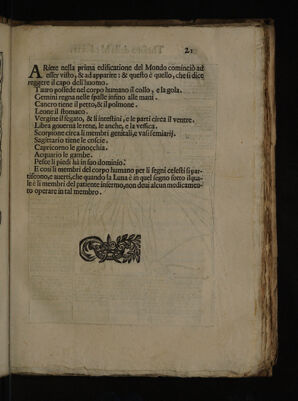 21
ARiete nella prima edificatione del Mondo cominciò ad
esser visto, & ad apparire: & questo è quello, che si dice
reggere il capo dell'huomo.
Tauro possede nel corpo humano il collo, e la gola.
Gemini regna nelle spalle infino alle mani.
Cancro tiene il petto, & il polmone.
Leone il stomaco.
Vergine il fegato, & li intestini, e le parti circa il ventre.
Libra gouerna le rene, le anche, e la vessica.
Scorpione circa li membri genitali, e
Sagittario tiene le coscie.
Capricorno le ginocchia.
Acquario le gambe.
Pesce li piedi hà in suo dominio.
E così li membri del corpo humano per li segni celesti si par-
tiscono, e auerti, che quando la Luna è in quel segno sotto il qua-
le è li membri del patiente infermo, non deui alcun medicamen-
to operare in tal membro.